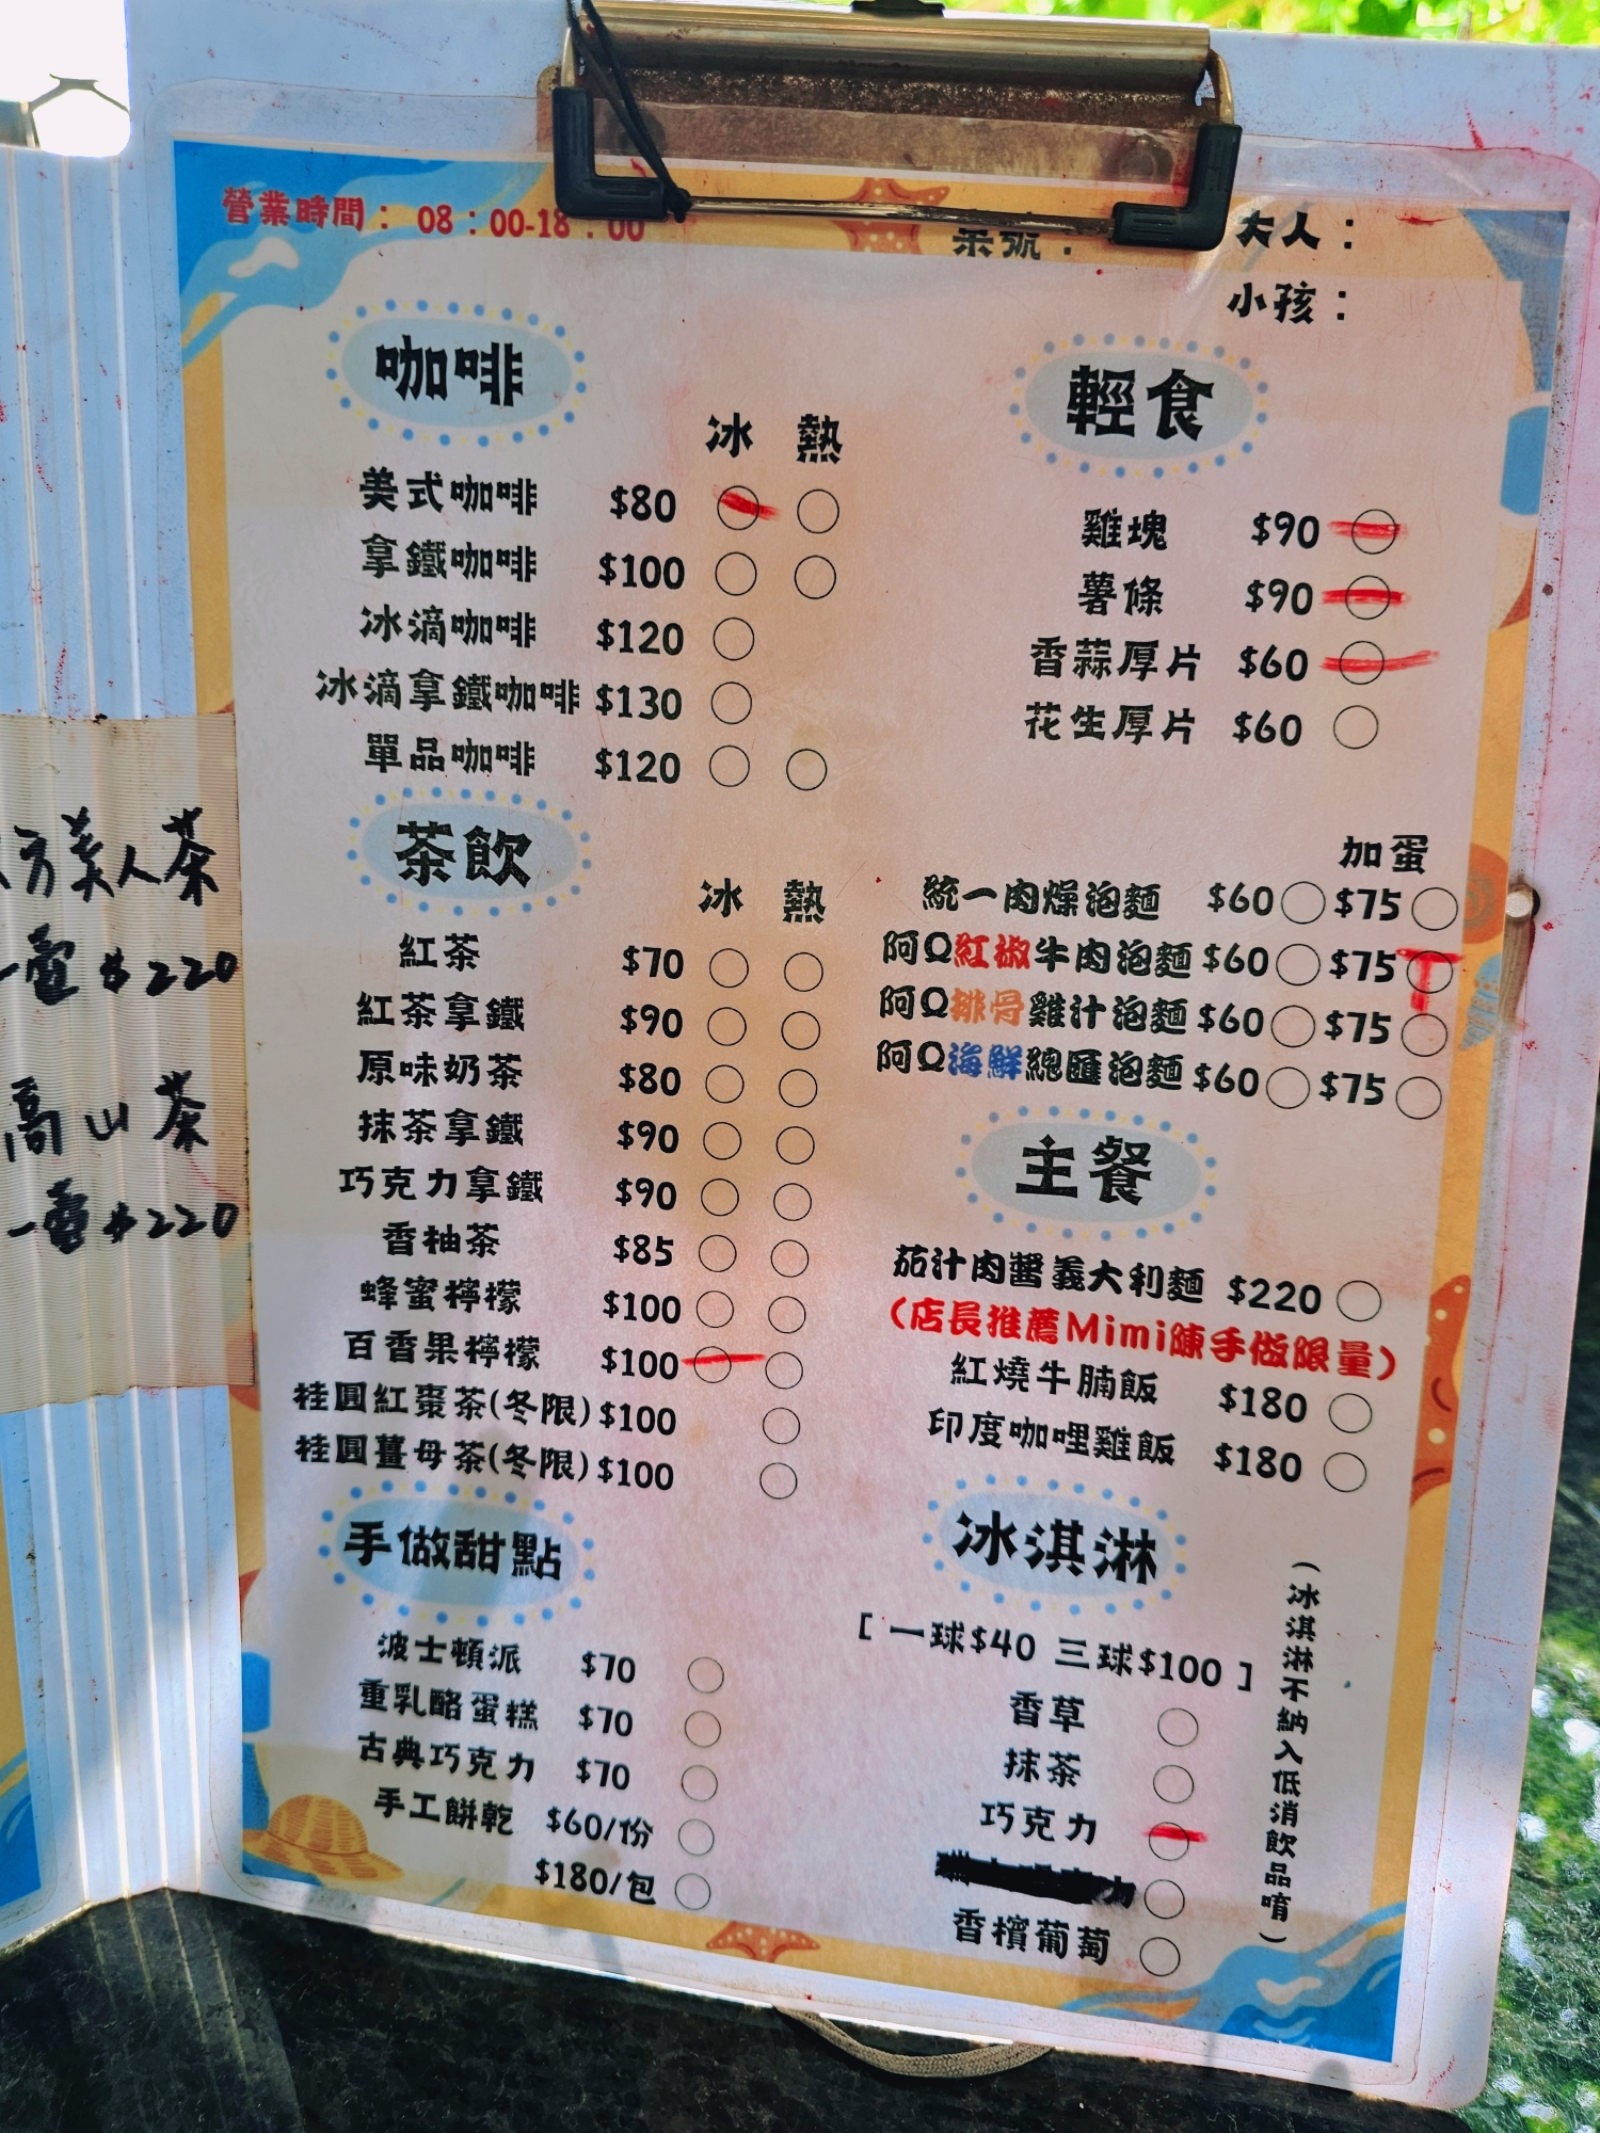 營業時間： 08：00-18：00
桌號：
大人：
小孩：
咖啡
冰 熱
美式咖啡 $80
拿鐵咖啡 $100
冰滴咖啡 $120
冰滴拿鐵咖啡 $130
單品咖啡 $120
茶飲
冰 熱
紅茶 $70
紅茶拿鐵 $90
原味奶茶 $80
抹茶拿鐵 $90
巧克力拿鐵 $90
香柚茶 $85
蜂蜜檸檬 $100
百香果檸檬 $100
桂圓紅棗茶(冬限) $100
桂圓薑母茶(冬限) $100
手做甜點
波士頓派 $70
重乳酪蛋糕 $70
古典巧克力 $70
手工餅乾 $60/份
$180/包
輕食
雞塊 $90
薯條 $90
香蒜厚片 $60
花生厚片 $60
加蛋
統一肉燥泡麵 $60 $75
阿Q紅椒牛肉泡麵 $60 $75
阿Q排骨雞汁泡麵 $60 $75
阿Q海鮮總匯泡麵 $60 $75
主餐
茄汁肉醬義大利麵 $220
(店長推薦Mimi陳手做限量)
紅燒牛腩飯 $180
印度咖哩雞飯 $180
冰淇淋
[ 一球$40 三球$100 ]
香草
抹茶
巧克力
力
香檳葡萄
(冰淇淋不納入低消飲品唷)
方美人茶
一壺$220
高山茶
一壺$220